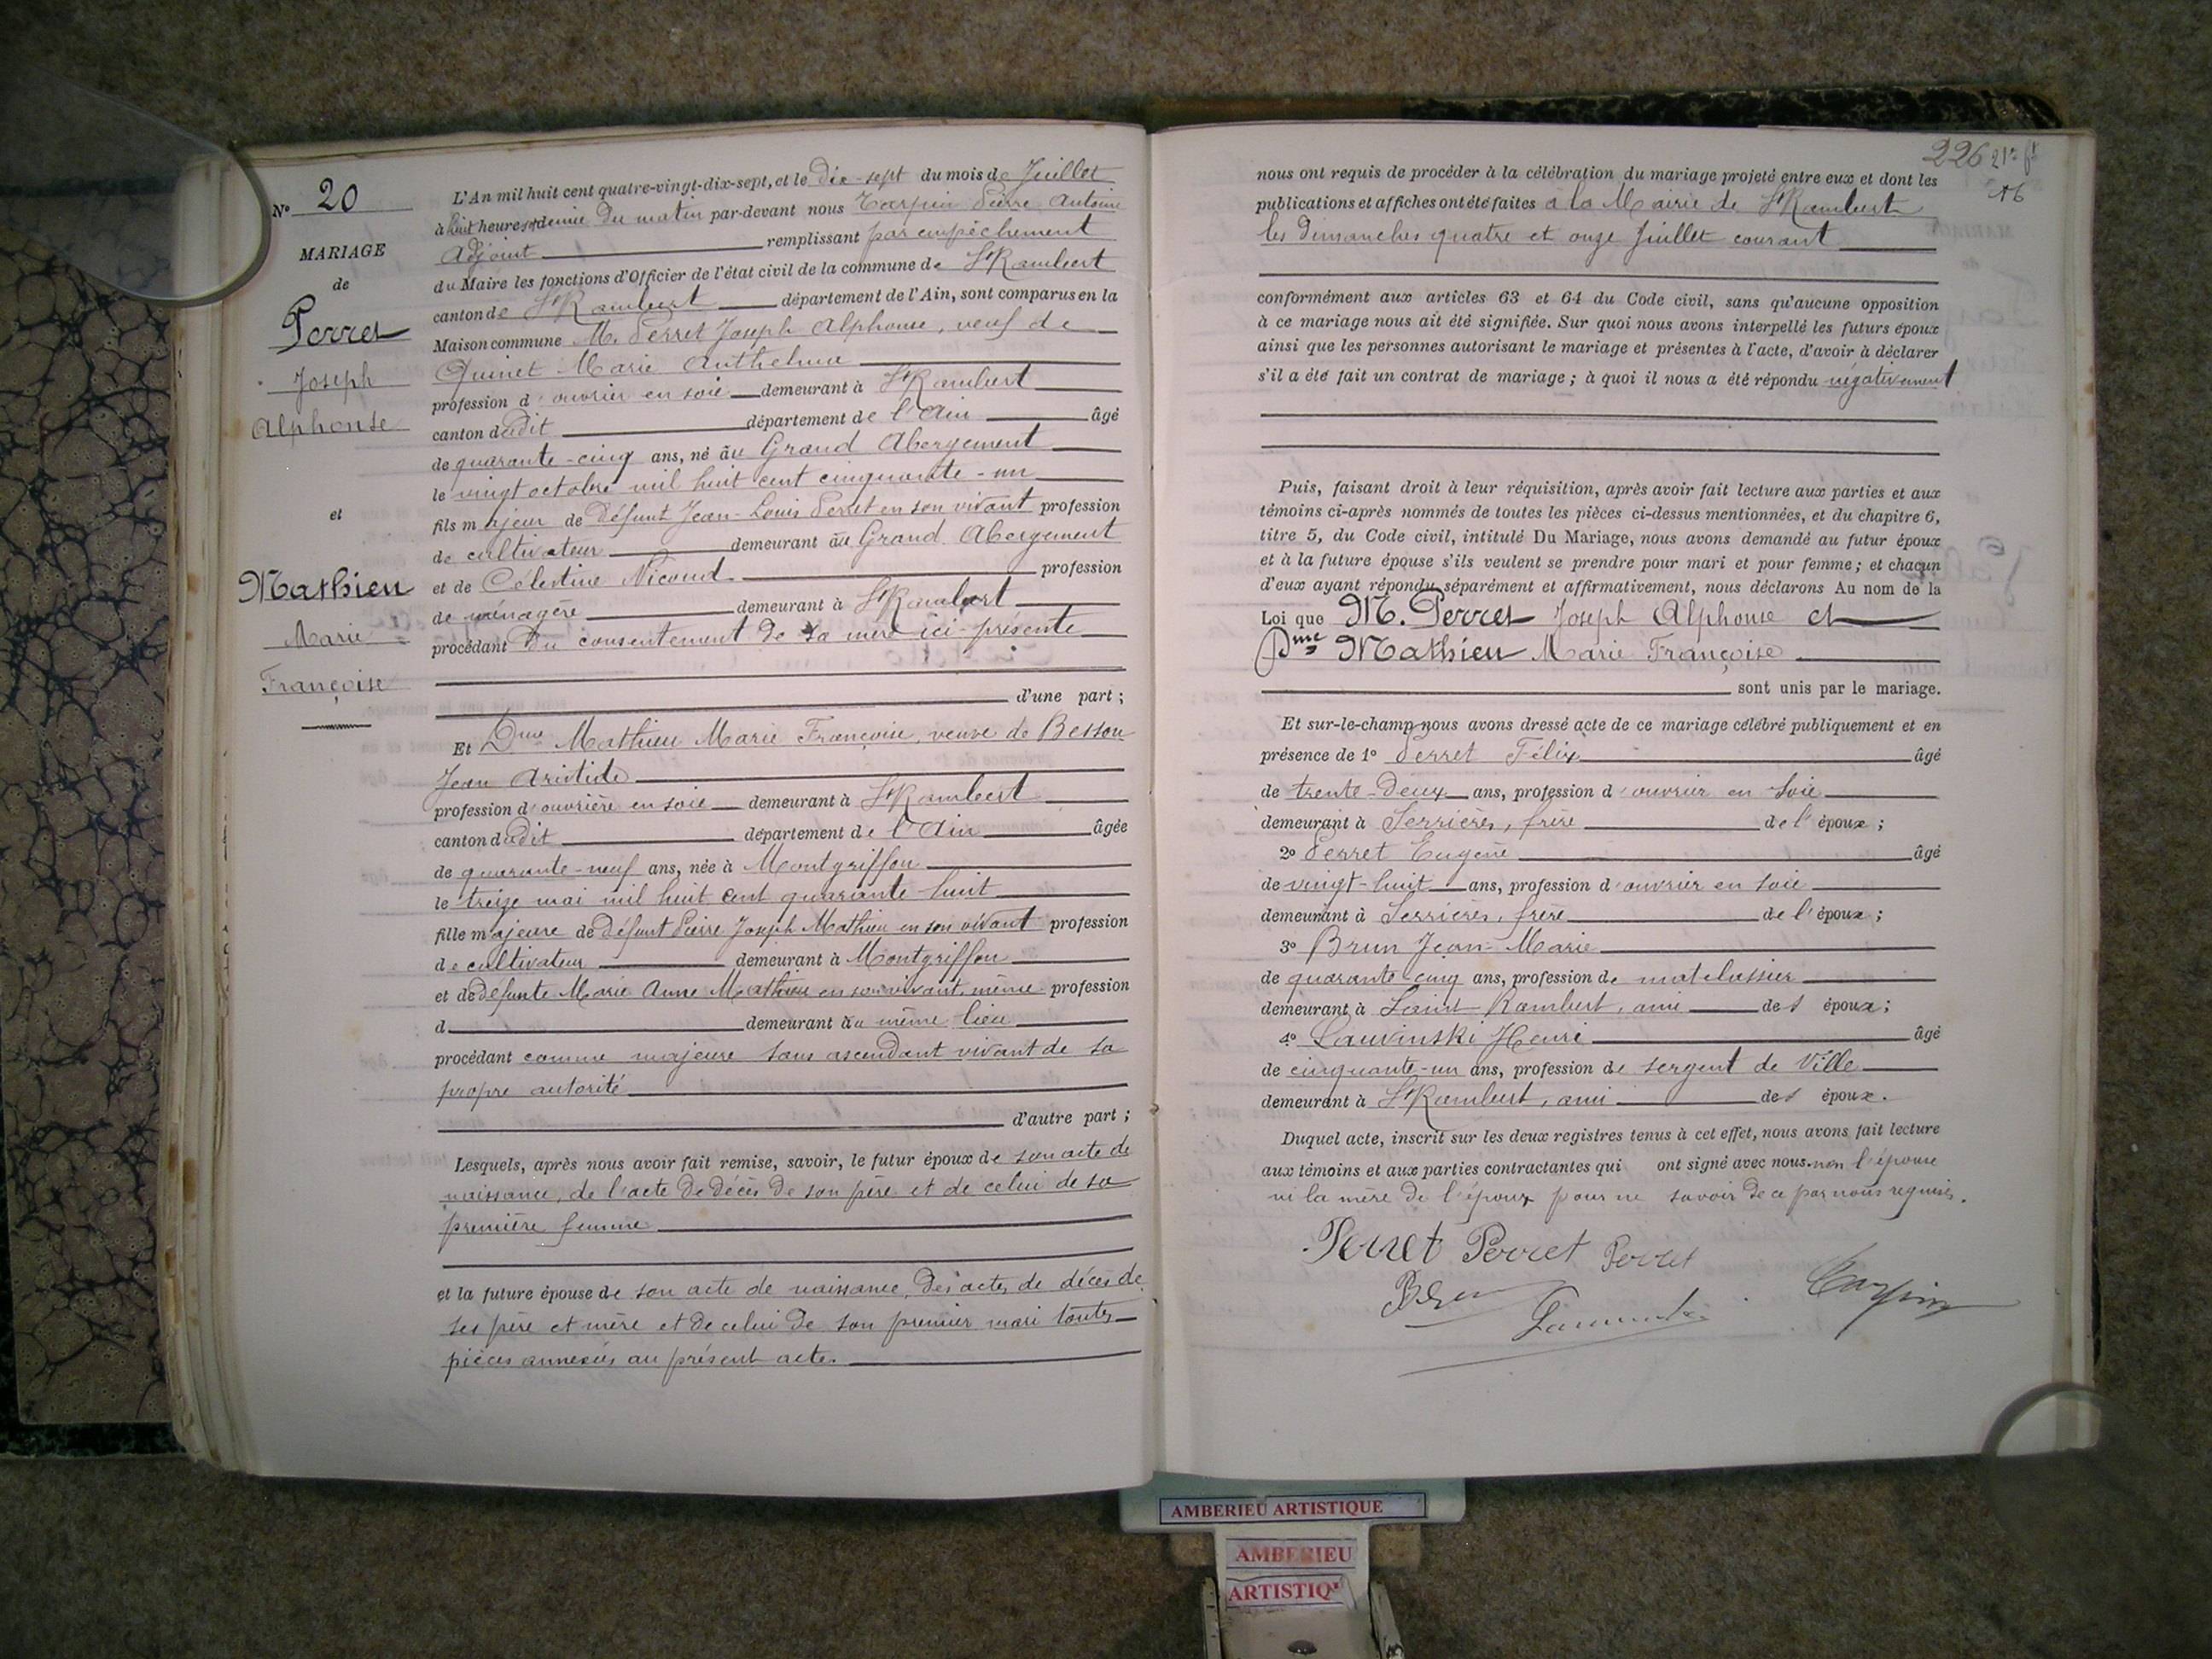 N° 20
MARIAGE
de
Perret
Joseph
Alphonse
et
Mathieu
Marie
Françoise
L'An mil huit cent quatre-vingt-dix-sept, et le dix-sept du mois de Juillet
à huit heures et demie du matin par-devant nous Tarpin Pierre Antoine
Adjoint remplissant par empêchement
du Maire les fonctions d'Officier de l'état civil de la commune de St Rambert
canton de St Rambert département de l'Ain, sont comparus en la
Maison commune M. Perret Joseph Alphonse, veuf de
Quinet Marie Anthelma
profession d'ouvrier en soie demeurant à St Rambert
canton dudit département de l'Ain âgé
de quarante-cinq ans, né au Grand Abergement
le vingt octobre mil huit cent cinquante-un
fils majeur de défunt Jean-Louis Perret en son vivant profession
de cultivateur demeurant au Grand Abergement
et de Célestine Nicoud profession
de ménagère demeurant à St Rambert
procédant du consentement de sa mère ici-présente
d'une part ;
Et Dme Mathieu Marie Françoise, veuve de Besson
Jean Aristide
profession d'ouvrière en soie demeurant à St Rambert
canton dudit département de l'Ain âgée
de quarante-neuf ans, née à Montgriffon
le treize mai mil huit cent quarante-huit
fille majeure de défunt Pierre Joseph Mathieu en son vivant profession
de cultivateur demeurant à Montgriffon
et de défunte Marie Anne Mathieu en son vivant, même profession
d demeurant au même lieu
procédant comme majeure sans ascendant vivant de sa
propre autorité
d'autre part ;
Lesquels, après nous avoir fait remise, savoir, le futur époux de son acte de
naissance, de l'acte de décès de son père et de celui de sa
première femme
et la future épouse de son acte de naissance, des actes de décès de
ses père et mère et de celui de son premier mari toutes
pièces annexées au présent acte.
226 21e ft
16
nous ont requis de procéder à la célébration du mariage projeté entre eux et dont les
publications et affiches ont été faites à la Mairie de St Rambert
les dimanches quatre et onze Juillet courant
conformément aux articles 63 et 64 du Code civil, sans qu'aucune opposition
à ce mariage nous ait été signifiée. Sur quoi nous avons interpellé les futurs époux
ainsi que les personnes autorisant le mariage et présentes à l'acte, d'avoir à déclarer
s'il a été fait un contrat de mariage ; à quoi il nous a été répondu négativement
Puis, faisant droit à leur réquisition, après avoir fait lecture aux parties et aux
témoins ci-après nommés de toutes les pièces ci-dessus mentionnées, et du chapitre 6,
titre 5, du Code civil, intitulé Du Mariage, nous avons demandé au futur époux
et à la future épouse s'ils veulent se prendre pour mari et pour femme ; et chacun
d'eux ayant répondu séparément et affirmativement, nous déclarons Au nom de la
Loi que M. Perret Joseph Alphonse et
Dme Mathieu Marie Françoise
sont unis par le mariage.
Et sur-le-champ nous avons dressé acte de ce mariage célébré publiquement et en
présence de 1° Perret Félix âgé
de trente-deux ans, profession d'ouvrier en soie
demeurant à Serrières, frère de l'époux ;
2° Perret Eugène âgé
de vingt-huit ans, profession d'ouvrier en soie
demeurant à Serrières, frère de l'époux ;
3° Brun Jean-Marie
de quarante-cinq ans, profession de matelassier
demeurant à Saint-Rambert, ami des époux ;
4° Lauvinski Henri âgé
de cinquante-un ans, profession de sergent de Ville
demeurant à St Rambert, ami des époux.
Duquel acte, inscrit sur les deux registres tenus à cet effet, nous avons fait lecture
aux témoins et aux parties contractantes qui ont signé avec nous. non l'épouse
ni la mère de l'époux pour ne savoir de ce par nous requis.
Perret Perret Perret
Tarpin
AMBERIEU ARTISTIQUE
AMBERIEU
ARTISTIQ